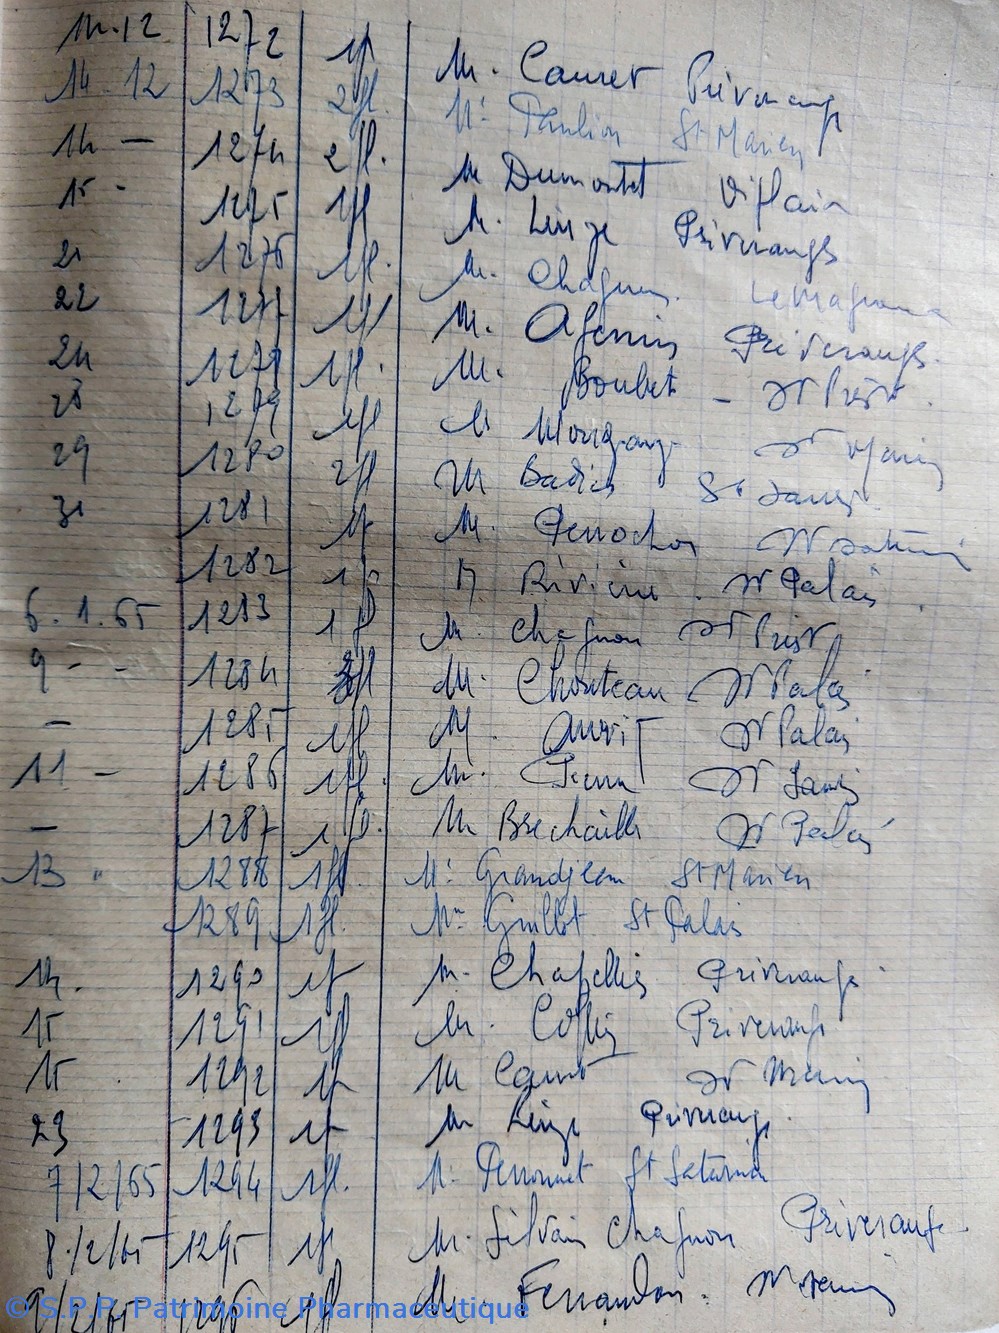 14.12 1272 1f M. Cauret Préverange
14-12 1273 2fl. Mr Paulien St Marien
14 — 1274 2fl. M Dumontet Viplaix
15 - 1275 1fl M. Linge Préveranges
21 1276 1fl. M. Chagnon
22 1277 1fl M. Agenis Préveranges.
24 1278 1fl. M. Boubet - St Priest.
28 1279 1fl M
29 1280 2fl M Badier St
31 1281 1f M. Perrochon St Saturnin
1282 1f M. Rivière. St Palais.
6.1.65 1283 1fl M. Chagnon St Priest
9 - - 1284 fl M. Chouteau St Palais
— 1285 1fl M. St Palais
11 — 1286 1fl. M. St
— 1287 1fl. M Brechaille St Palais
13 " 1288 1fl. Mr Grandjean St Marien
1289 1fl. Mr Guillot St Palais
14. 1290 1f M. Préverange
15 1291 1fl M. Préverange
15 1292 1f M Cauret St Marien
23 1293 1f M Linge Préverange.
7/2/65 1294 1fl. Mr Perronnet St Saturnin
8/2/65 1295 1f M. Silvain Chagnon Préverange
9/2/65 1296 1fl M. Ferrandon.
© S.P.P. Patrimoine Pharmaceutique